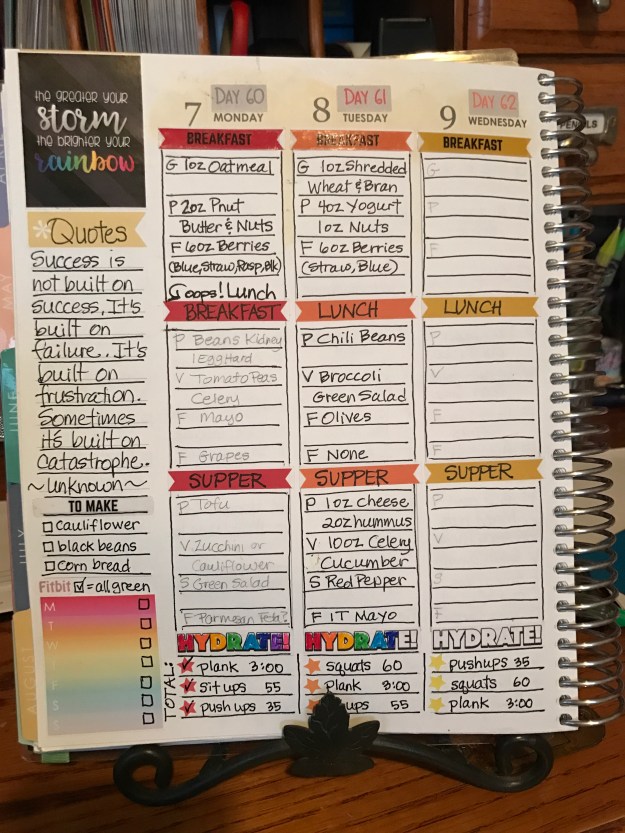 the greater your
storm
the brighter your
rainbow
Quotes
Success is
not built on
success. It's
built on
failure. It's
built on
frustration.
Sometimes
it's built on
catastrophe.
~unknown~
TO MAKE
cauliflower
black beans
corn bread
Fitbit =all green
M
T
W
T
F
S
S
7 DAY 60
MONDAY
BREAKFAST
G 1oz Oatmeal
P 2oz Pnut
Butter & Nuts
F 6oz Berries
(Blue, Straw, Rasp, Blk)
Ooops! Lunch
BREAKFAST
P Beans Kidney
1 Egg Hard
V Tomato Peas
Celery
F Mayo
F Grapes
SUPPER
P Tofu
V Zucchini or
Cauliflower
S Green Salad
F Parmesan Feta?
HYDRATE!
TOTAL:
plank 3:00
situps 55
pushups 35
8 DAY 61
TUESDAY
BREAKFAST
G 1oz Shredded
Wheat & Bran
P 4oz Yogurt
1oz Nuts
F 6oz Berries
(Straw, Blue)
LUNCH
P Chili Beans
V Broccoli
Green Salad
F Olives
F None
SUPPER
P 1oz Cheese
2oz hummus
V 10oz Celery
Cucumber
S Red Pepper
F 1T Mayo
HYDRATE!
squats 60
plank 3:00
ups 55
9 DAY 62
WEDNESDAY
BREAKFAST
G
P
F
LUNCH
P
V
F
F
SUPPER
P
V
S
F
HYDRATE!
pushups 35
squats 60
plank 3:00
MAY
JUNE
JULY
AUGUST